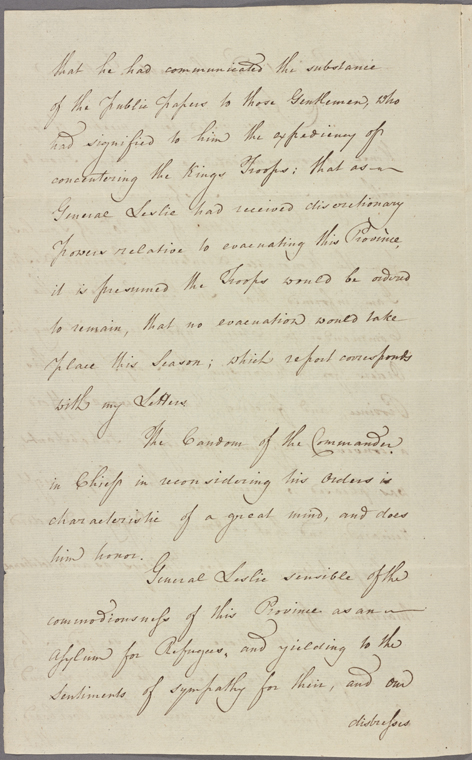 that he had communicated the substance
of the public papers to those Gentlemen, who
had signified to him the expediency of
concentering the Kings Troops: that as
General Leslie had received discretionary
powers relative to evacuating this Province,
it is presumed the Troops would be ordered
to remain, that no evacuation would take
place this Season; which report corresponds
with my Letters
The Candom of the Commander
in Chief in reconsidering his Orders is
characteristic of a great mind, and does
him honor.
General Leslie sensible of the
commodiousness of this Province as an
Asylum for Refugees, and yielding to the
Sentiments of sympathy for their, and our
distresses